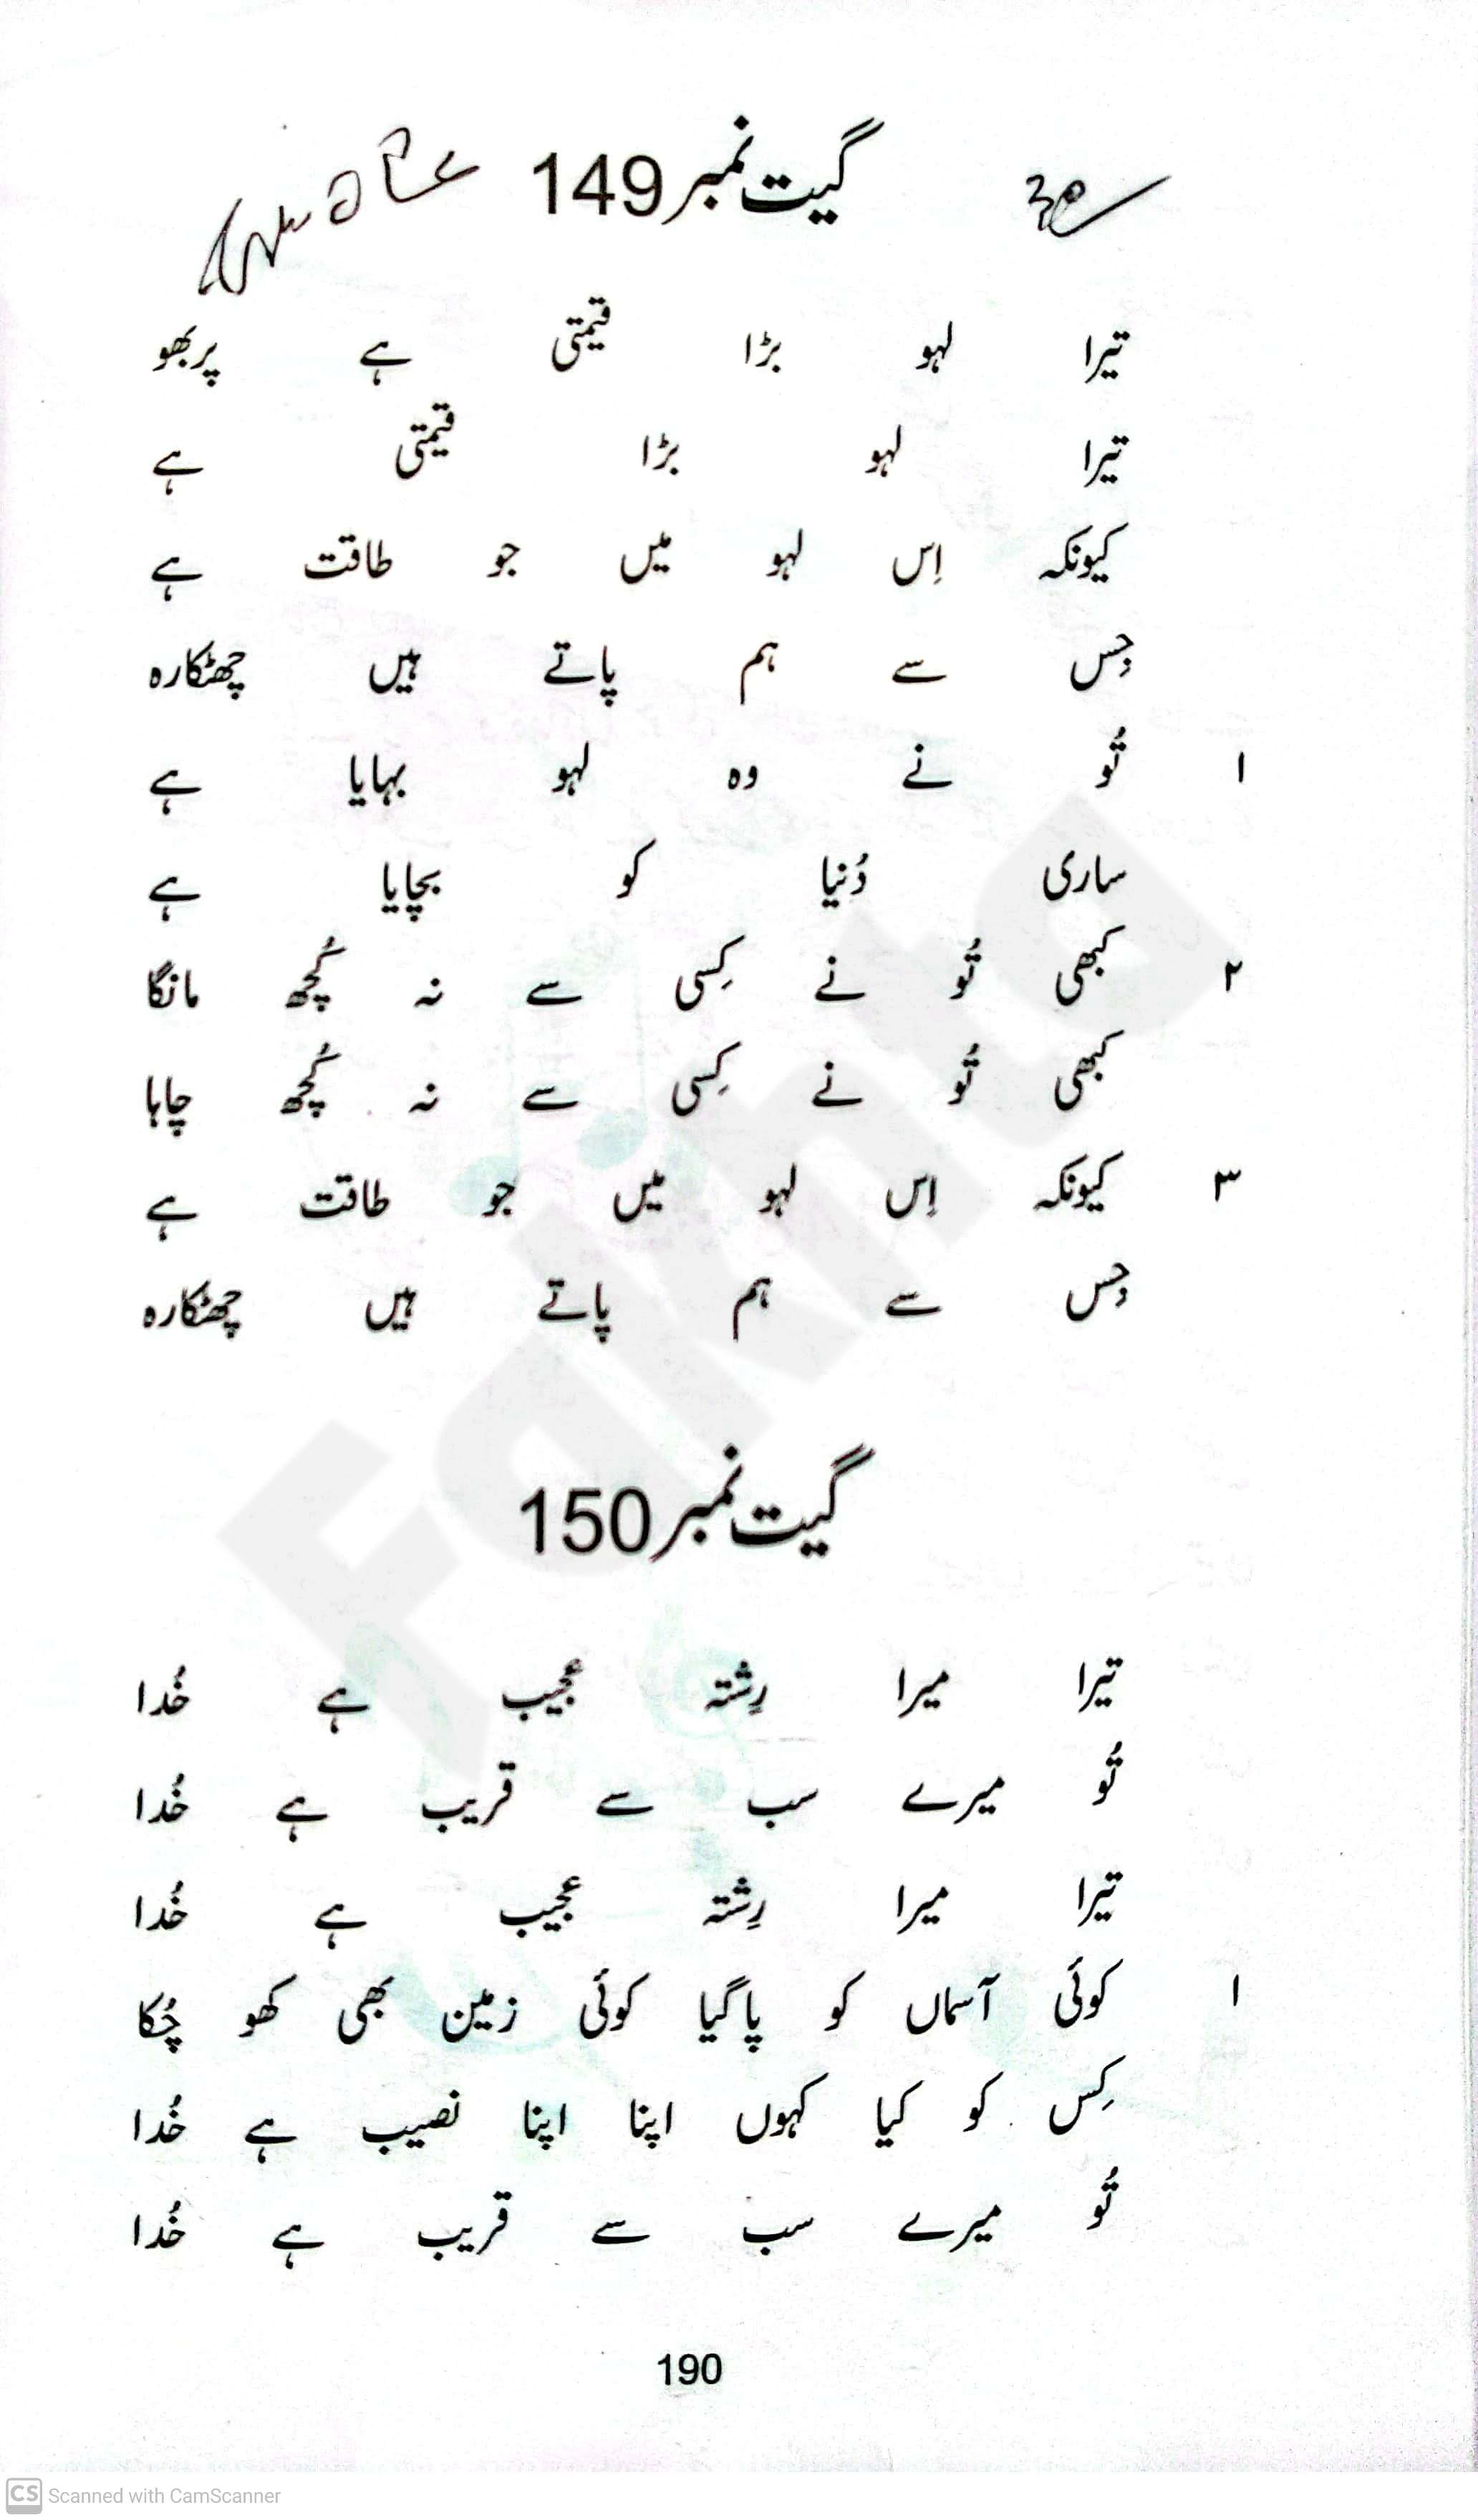 گیت نمبر 149
تیرا لہو بڑا قیمتی ہے پربھو
تیرا لہو بڑا قیمتی ہے
کیونکہ اِس لہو میں جو طاقت ہے
جِس سے ہم پاتے ہیں چھٹکارہ
۱ تُو نے وہ لہو بہایا ہے
ساری دُنیا کو بچایا ہے
۲ کبھی تُو نے کِسی سے نہ کُچھ مانگا
کبھی تُو نے کِسی سے نہ کُچھ چاہا
۳ کیونکہ اِس لہو میں جو طاقت ہے
جِس سے ہم پاتے ہیں چھٹکارہ
گیت نمبر 150
تیرا میرا رِشتہ عجیب ہے خُدا
تُو میرے سب سے قریب ہے خُدا
تیرا میرا رِشتہ عجیب ہے خُدا
۱ کوئی آسماں کو پا گیا کوئی زمین بھی کھو چُکا
کِس کو کیا کہوں اپنا اپنا نصیب ہے خُدا
تُو میرے سب سے قریب ہے خُدا
190
Fakhta
CS Scanned with CamScanner